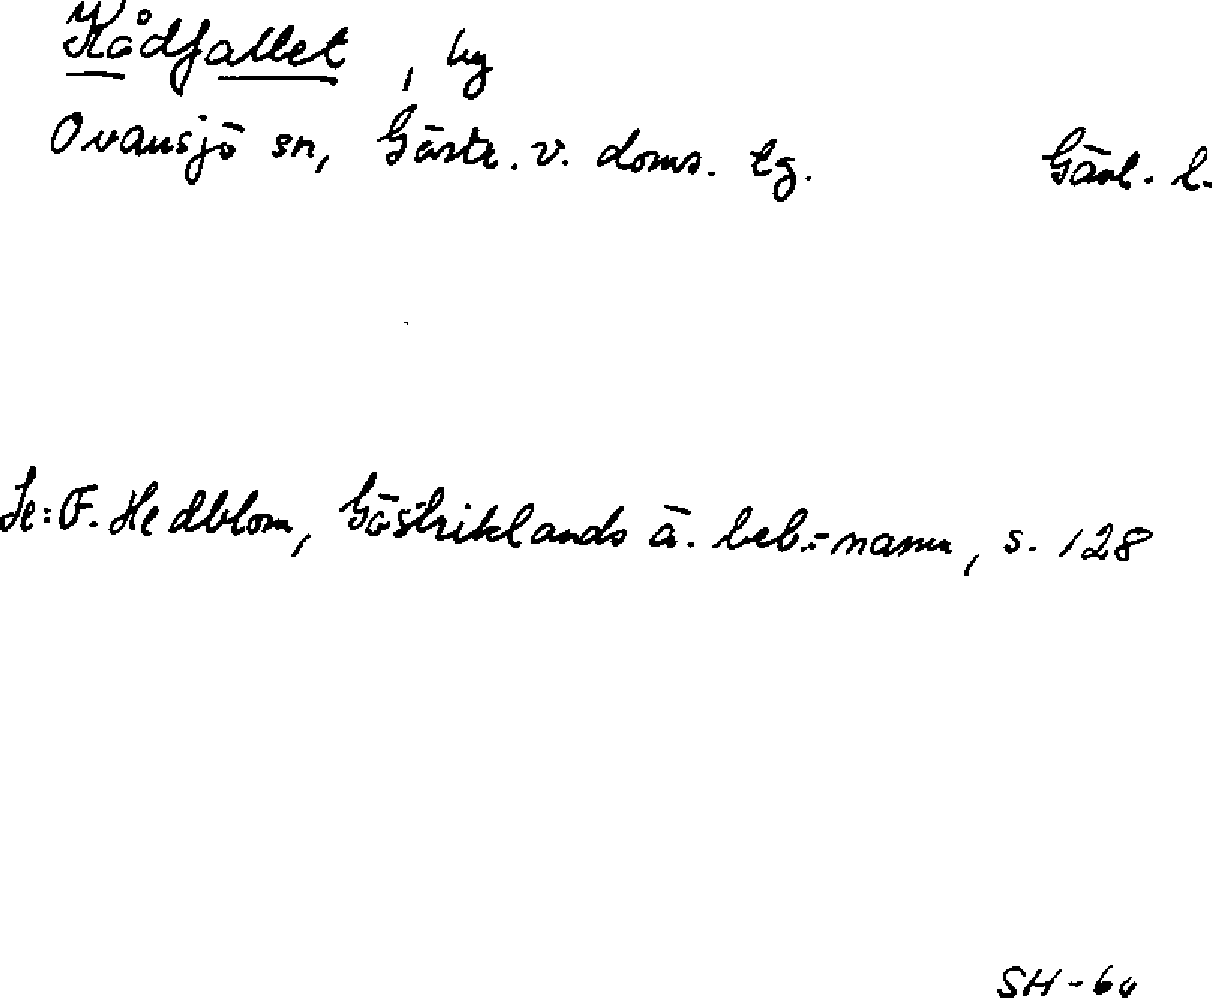 Rådfallet, by
Ovansjö sn, Gästr. v. doms. tg. Gävl. l.
Se: F. Hedblom, Gästriklands ä. beb.-namn, s. 128
SH-64